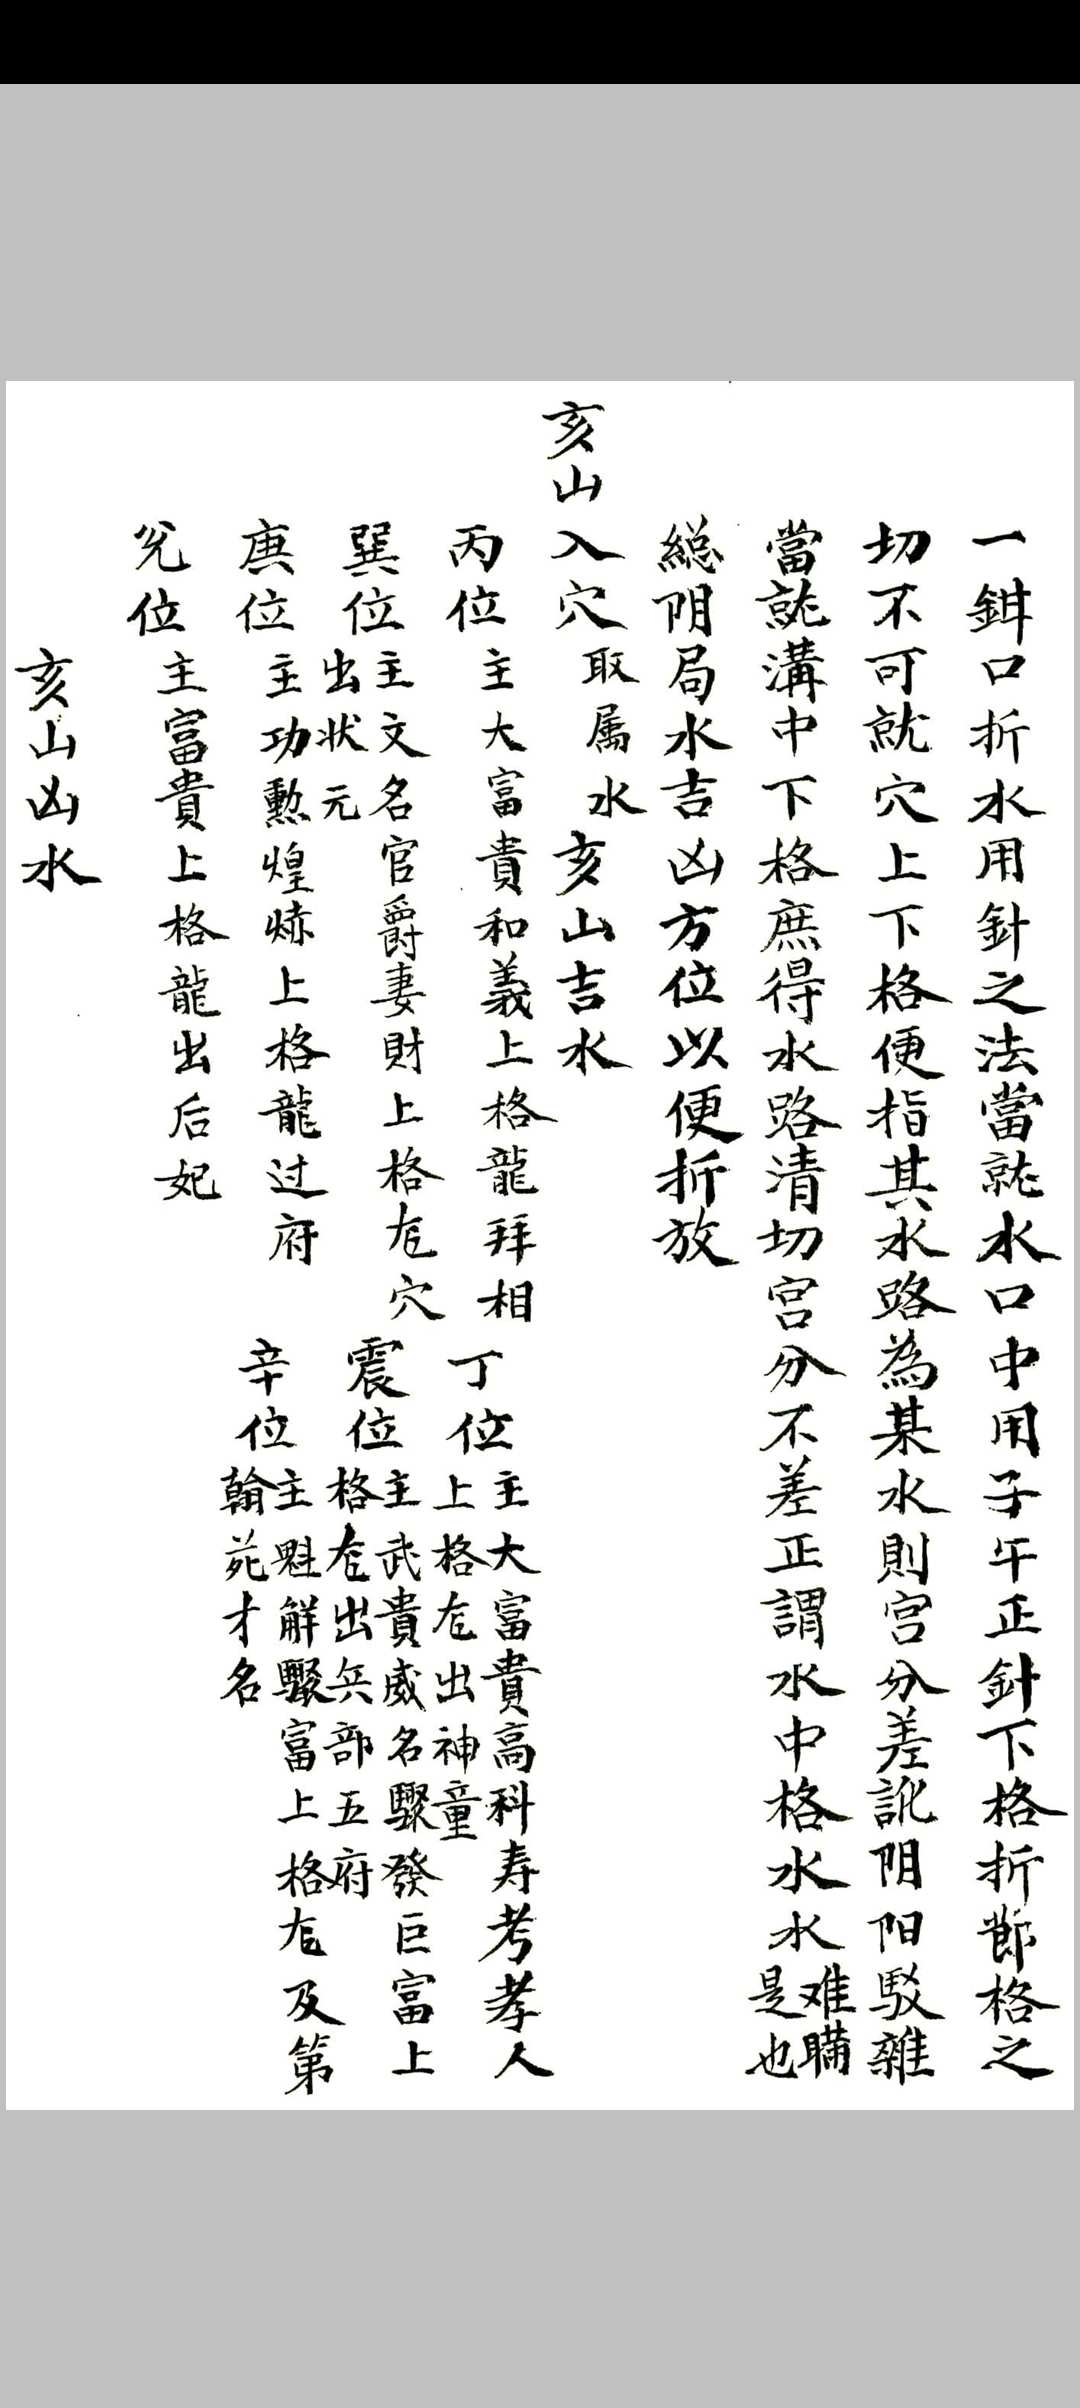 一鉗口折水用針之法當就水口中用子午正針下格折郎格之
切不可就穴上下格便指其水路為某水則宫分差訛阴阳駁雜
當就溝中下格庶得水路清切宫分不差正謂水中格水水难瞞是也
總阴局水吉凶方位以便折放
亥山入穴取属水亥山吉水
丙位主大富貴和義上格龍拜相
丁位主大富貴高科寿考孝人上格龙出神童
巽位主文名官爵妻財上格龙穴出状元
震位主武貴威名驟發巨富上格龙出兵部五府
庚位主功勲煌赫上格龍过府
辛位主魁解驟富上格龙及第翰苑才名
兌位主富貴上格龍出后妃
亥山凶水